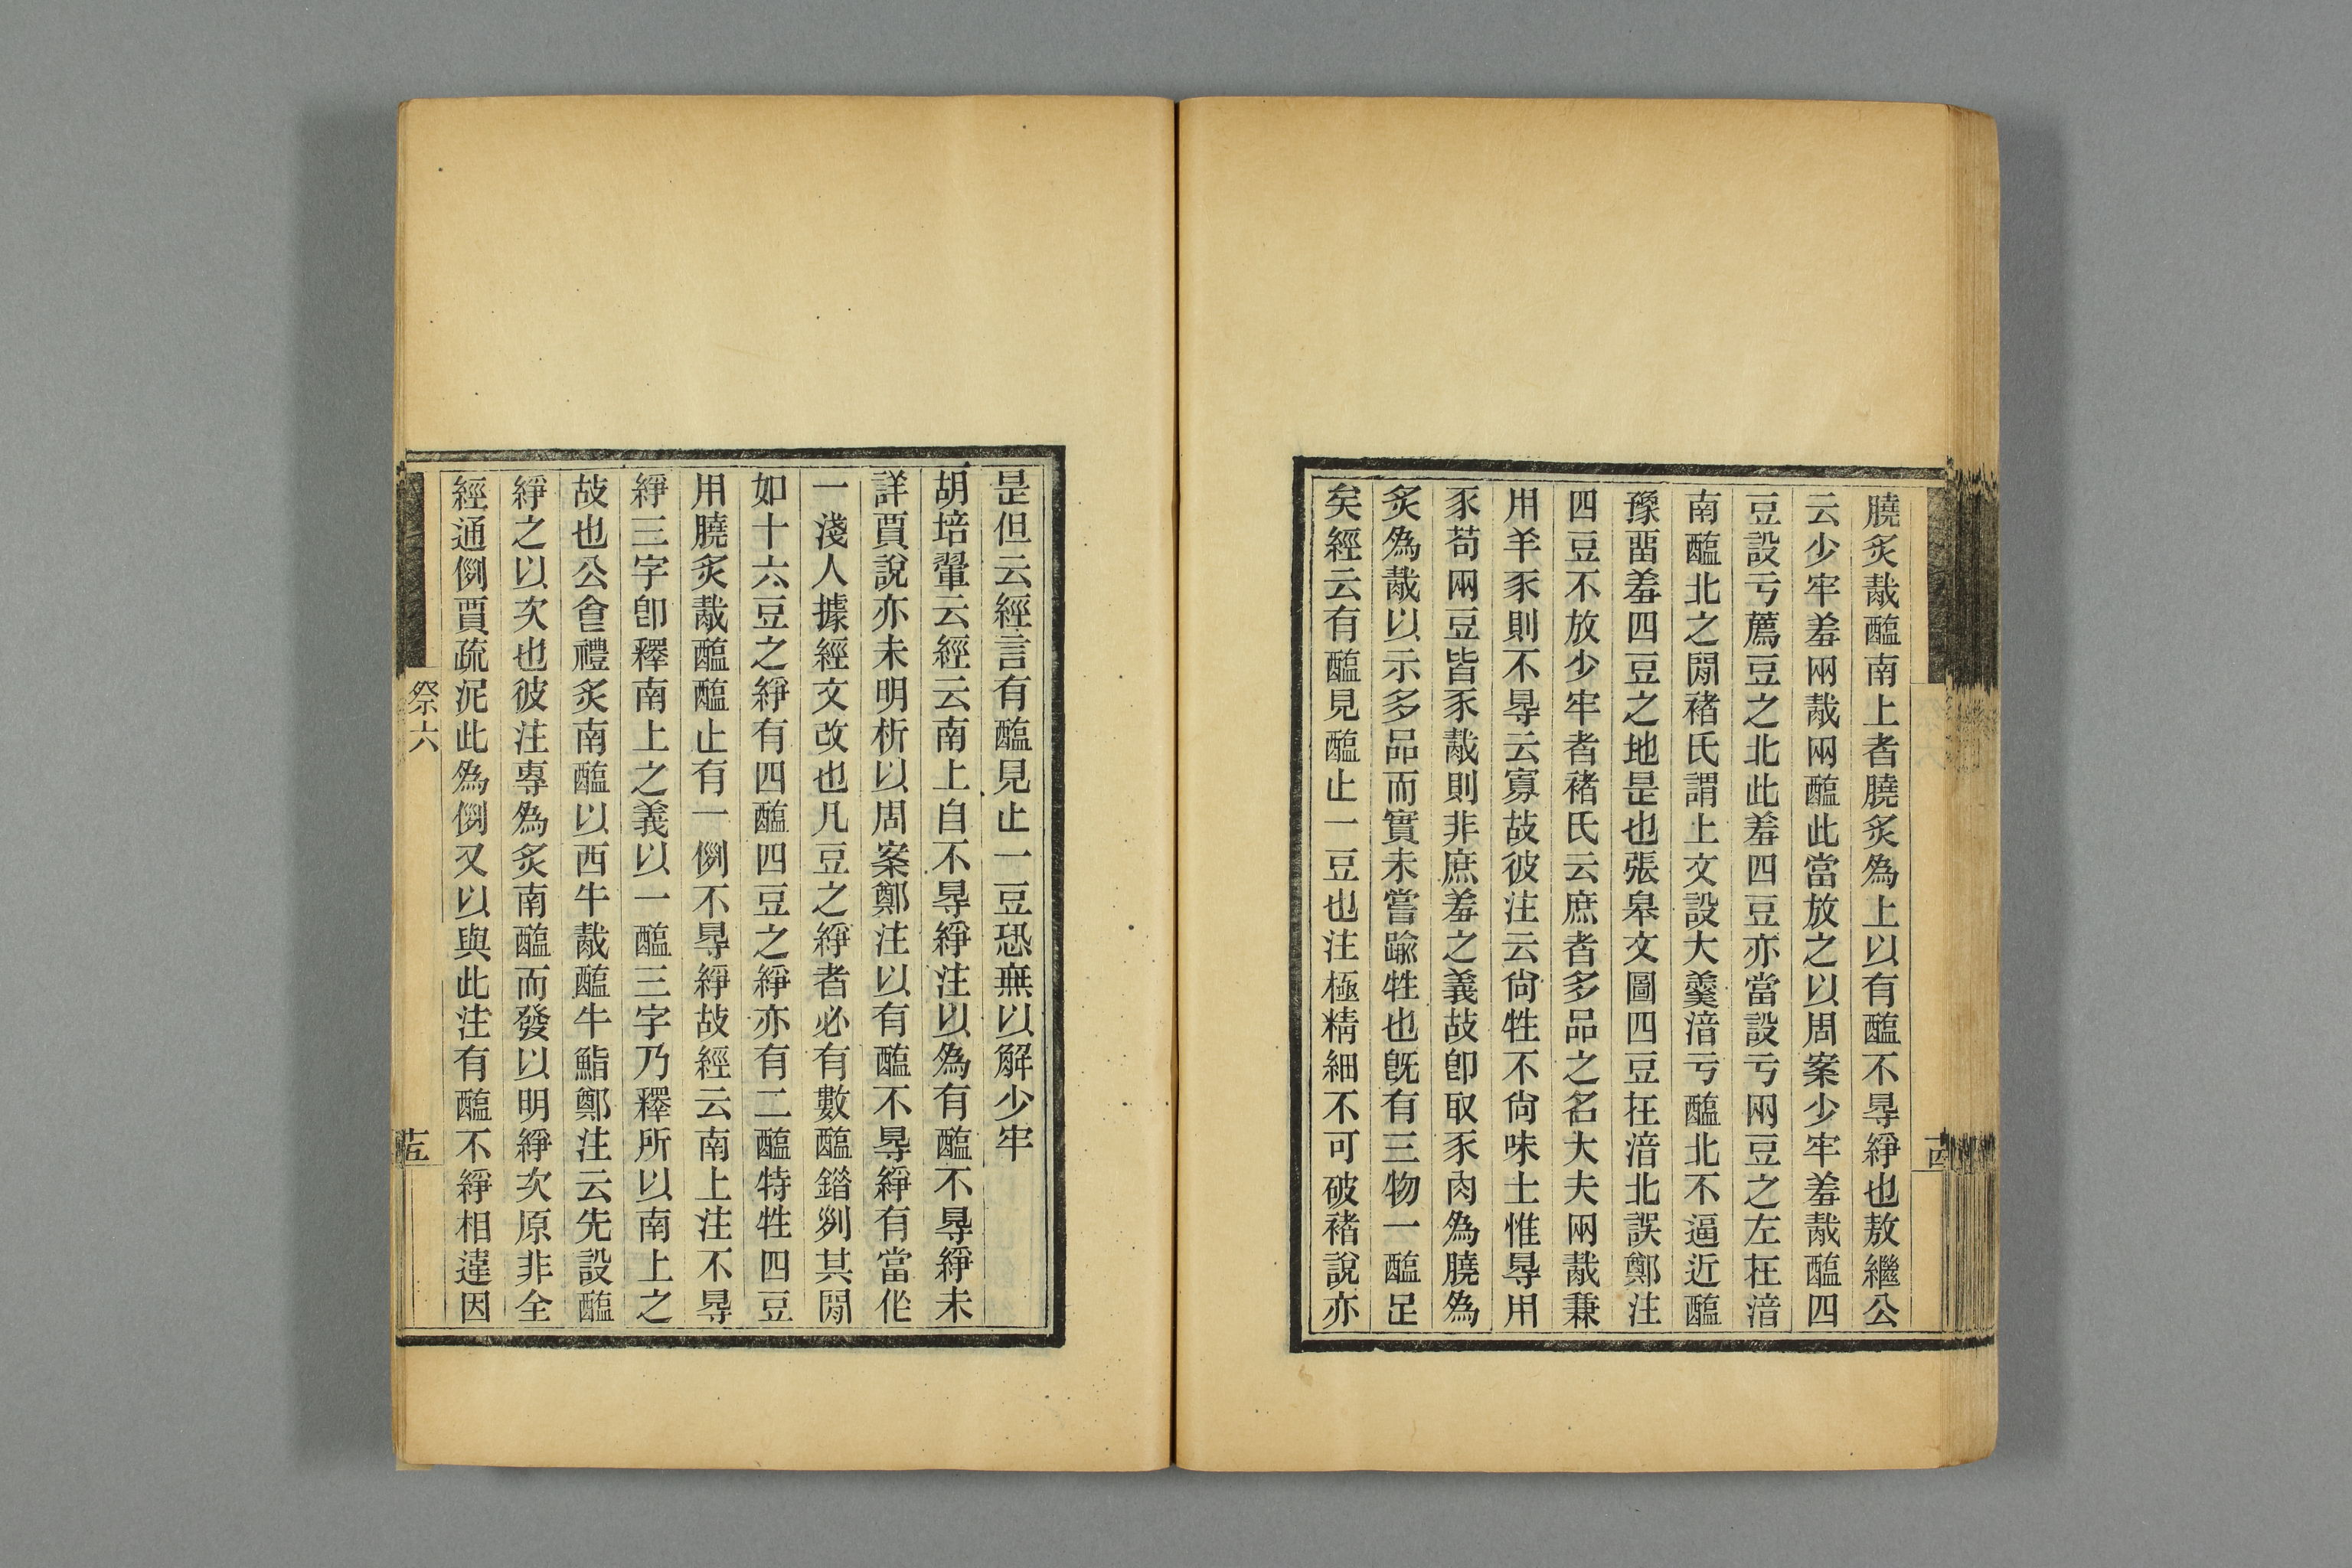 膮炙胾醢南上者膮炙爲上以有醢不㝵綪也敖繼公
云少牢羞兩胾兩醢此當放之以周案少牢羞胾醢四
豆設亏薦豆之北此羞四豆亦當設亏兩豆之左在湆
南醢北之閒褚氏謂上文設大羹湆亏醢北不逼近醢
豫畱羞四豆之地是也張皋文圖四豆在湆北誤鄭注
四豆不放少牢者褚氏云庶者多品之名大夫兩胾兼
用羊豕則不㝵云寡故彼注云尙牲不尙味士惟㝵用
豕苟兩豆皆豕胾則非庶羞之義故卽取豕肉爲膮爲
炙爲胾以示多品而實未嘗踰牲也旣有三物一醢足
矣經云有醢見醢止一豆也注極精細不可破褚說亦
是但云經言有醢見止一豆恐無以解少牢
胡培翬云經云南上自不㝵綪注以爲有醢不㝵綪未
詳賈說亦未明析以周案鄭注以有醢不㝵綪有當作
一淺人據經文改也凡豆之綪者必有數醢錯列其閒
如十六豆之綪有四醢四豆之綪亦有二醢特牲四豆
用膮炙胾醢醢止有一例不㝵綪故經云南上注不㝵
綪三字卽釋南上之義以一醢三字乃釋所以南上之
故也公食禮炙南醢以西牛胾醢牛鮨鄭注云先設醢
綪之以次也彼注專爲炙南醢而發以明綪次原非全
經通例賈疏泥此爲例又以與此注有醢不綪相違因
祭六
十五
十四